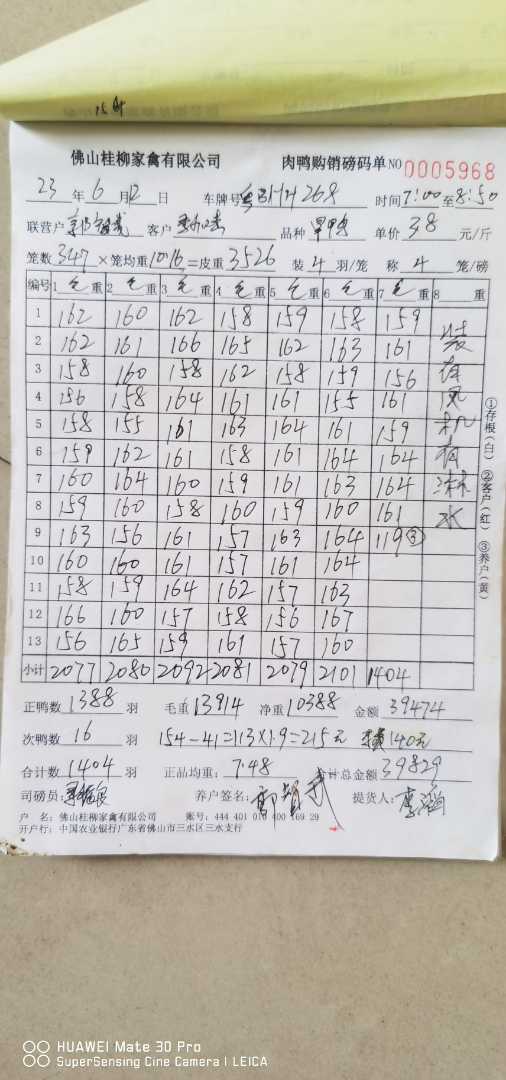 佛山桂柳家禽有限公司 肉鸭购销磅码单 NO 0005968
23 年 6 月 12 日 车牌号 268 时间 7:00 至 8:50
联营户 客户 品种 单价 3.8 元/斤
笼数 347 ×笼均重 10.16 =皮重 3526 装 4 羽/笼 称 4 笼/磅
编号 1 毛 重 2 毛 重 3 毛 重 4 毛 重 5 毛 重 6 毛 重 7 毛 重 8 重
1 162 160 162 158 159 158 159
2 162 161 166 165 162 163 161 装
3 158 160 158 162 158 159 156 有
4 156 158 164 161 161 155 161 风
5 158 155 161 163 164 161 159 机
6 159 162 161 158 161 164 164 有
7 160 164 160 159 161 163 164 淋
8 159 160 158 160 159 160 161 水
9 163 156 161 157 163 164 119③
10 160 160 161 157 161 164
11 158 159 164 162 157 163
12 166 160 157 158 156 167
13 156 165 159 161 157 160
小计 2077 2080 2092 2081 2079 2101 1404
正鸭数 1388 羽 毛重 13914 净重 10388 金额 39474
次鸭数 16 羽 154-41=113×1.9=215元 140元
合计数 1404 羽 正品均重: 7.48 合计总金额 39829
司磅员: 养户签名: 提货人:
户 名: 佛山桂柳家禽有限公司 账号: 444 401 010 400 169 29
开户行: 中国农业银行广东省佛山市三水区三水支行
①存根(白) ②客户(红) ③养户(黄)
HUAWEI Mate 30 Pro
SuperSensing Cine Camera | LEICA